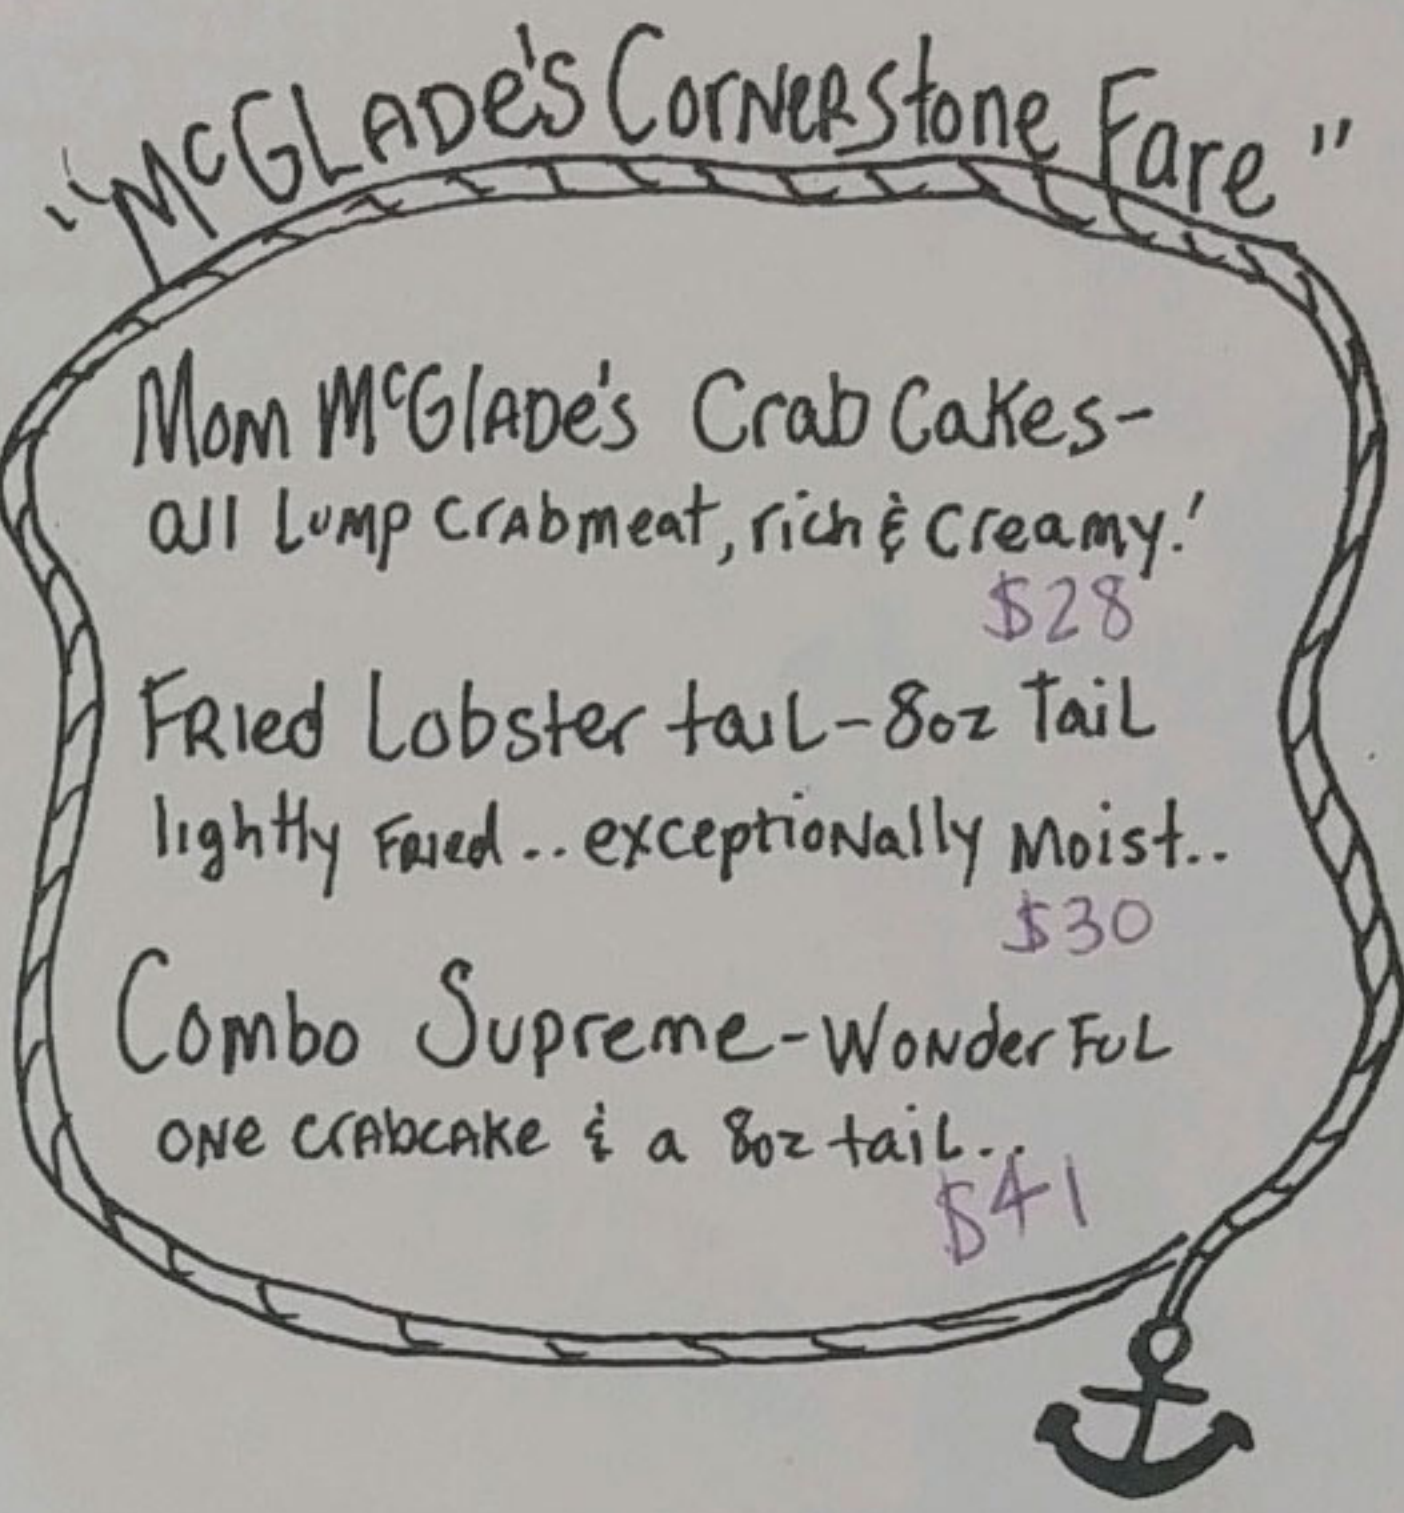 "McGLADe's CorNeRStone Fare"
Mom McGlADe's Crab Cakes-
all Lump CrAbmeat, rich & Creamy!
$28
FRied Lobster taiL-8oz TaiL
lightly FRied.. exceptioNally Moist..
$30
Combo Supreme-WoNderFuL
ONe CrAbCAKe & a 8oz taiL..
$41